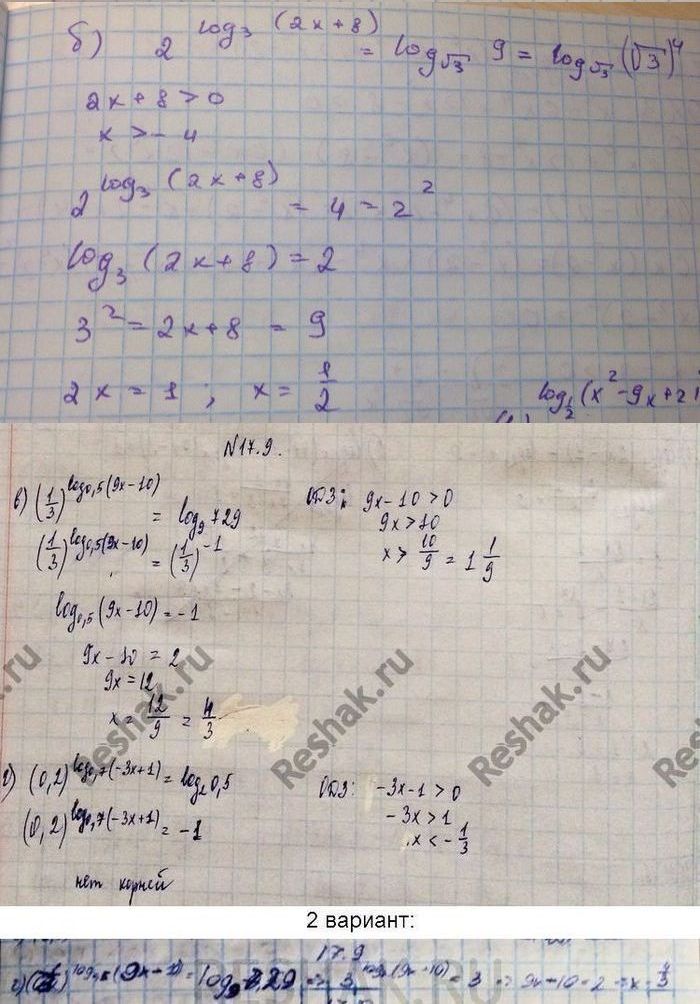 б) 2^log₃(2x+8) = log_√3 9 = log_√3 (√3)⁴
2x+8>0
x>-4
2^log₃(2x+8) = 4 = 2²
log₃(2x+8)=2
3² = 2x+8 = 9
2x = 1 ; x = 1/2
log_1/2 (x²-9x+21
N17.9.
в) (1/3)^log₀,₅(9x-10) = log₉ 729
ОДЗ: 9x-10>0
9x>10
x > 10/9 = 1 1/9
(1/3)^log₀,₅(9x-10) = (1/3)^-1
log₀,₅(9x-10) = -1
9x-10 = 2
9x = 12
x = 12/9 = 4/3
г) (0,2)^log₀,₇(-3x+1) = log₂ 0,5
ОДЗ: -3x-1>0
-3x>1
x < -1/3
(0,2)^log₀,₇(-3x+1) = -1
нет корней
Reshak.ru
Reshak.ru
Reshak.ru
2 вариант:
17.9
= 3 => 9x-10=2 => x= 4/3